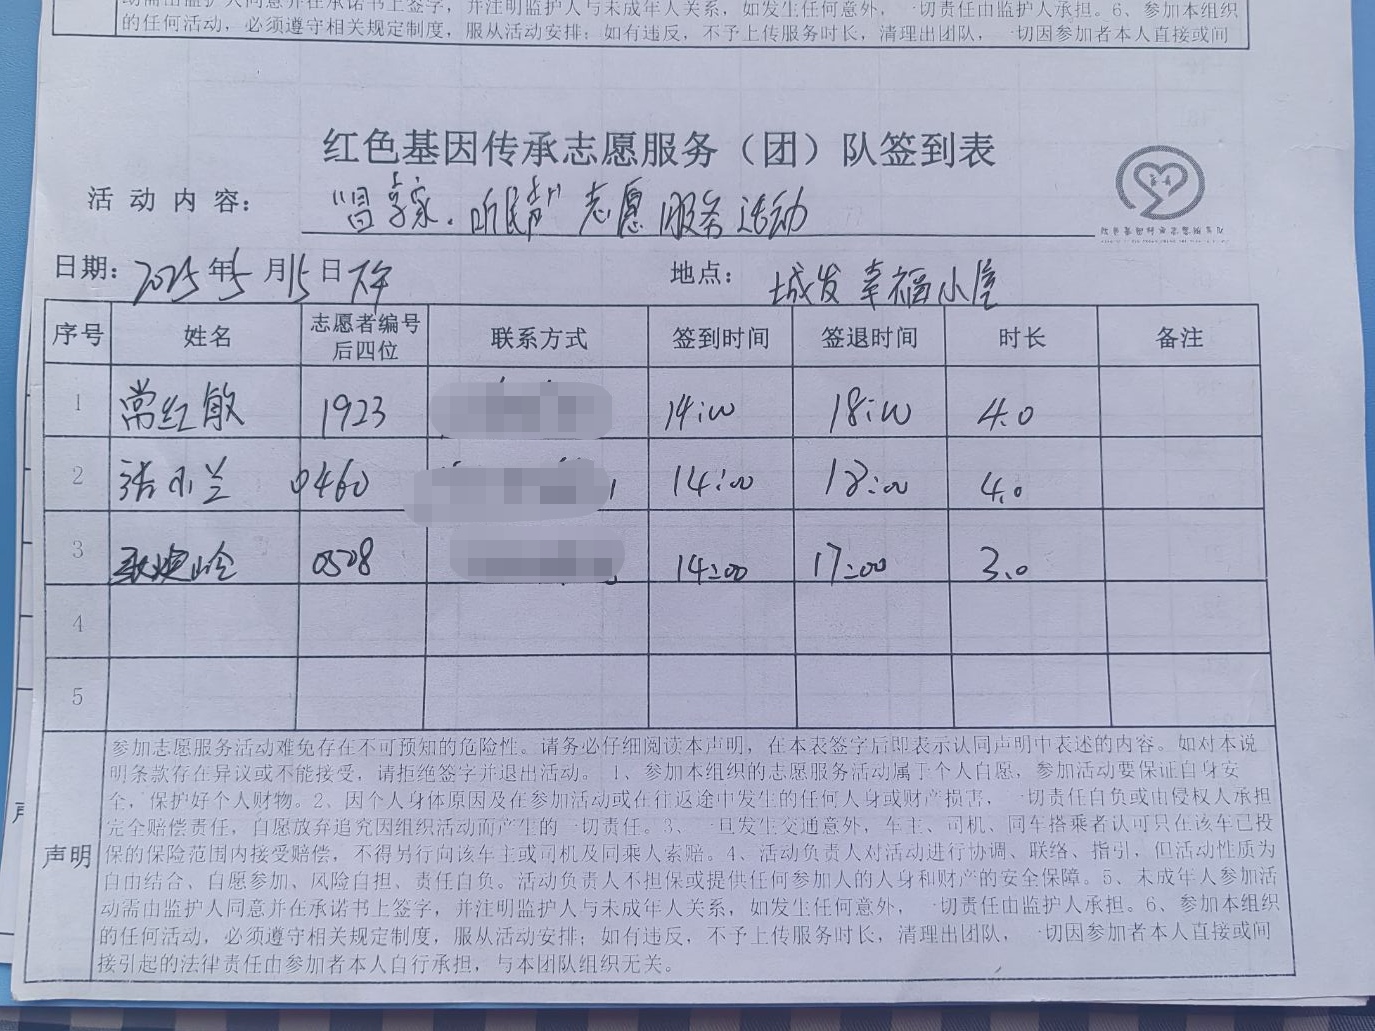 动需由监护人同意并在承诺书上签字，并注明监护人与未成年人关系，如发生任何意外，一切责任由监护人承担。6、参加本组织
的任何活动，必须遵守相关规定制度，服从活动安排；如有违反，不予上传服务时长，清理出团队，一切因参加者本人直接或间
红色基因传承志愿服务（团）队签到表
活动内容： 享家.听民声" 志愿服务活动
日期：2025年5月15日下午 地点：城发幸福小屋
序号 姓名 志愿者编号后四位 联系方式 签到时间 签退时间 时长 备注
1 常红敏 1923 14:00 18:00 4.0
2 小兰 0460 14:00 18:00 4.0
3 0528 14:00 17:00 3.0
4
5
声明
参加志愿服务活动难免存在不可预知的危险性。请务必仔细阅读本声明，在本表签字后即表示认同声明中表述的内容。如对本说
明条款存在异议或不能接受，请拒绝签字并退出活动。1、参加本组织的志愿服务活动属于个人自愿，参加活动要保证自身安
全，保护好个人财物。2、因个人身体原因及在参加活动或在往返途中发生的任何人身或财产损害，一切责任自负或由侵权人承担
完全赔偿责任，自愿放弃追究因组织活动而产生的一切责任。3、一旦发生交通意外，车主、司机、同车搭乘者认可只在该车已投
保的保险范围内接受赔偿，不得另行向该车主或司机及同乘人索赔。4、活动负责人对活动进行协调、联络、指引，但活动性质为
自由结合、自愿参加、风险自担、责任自负。活动负责人不担保或提供任何参加人的人身和财产的安全保障。5、未成年人参加活
动需由监护人同意并在承诺书上签字，并注明监护人与未成年人关系，如发生任何意外，一切责任由监护人承担。6、参加本组织
的任何活动，必须遵守相关规定制度，服从活动安排；如有违反，不予上传服务时长，清理出团队，一切因参加者本人直接或间
接引起的法律责任由参加者本人自行承担，与本团队组织无关。